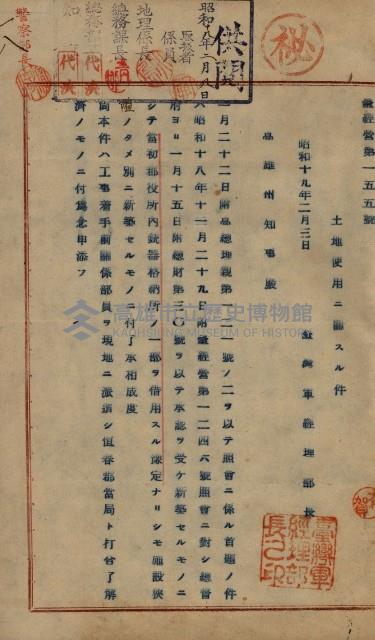 秘
供閲
昭和 年二月八日
係員
地理係長
總務課長
代決
代決
警察部長
臺經營第一五五號
土地使用ニ關スル件
昭和十九年二月三日
臺灣軍經理部長
高雄州知事殿
一月二十二日附高總地親第一二一號ノ二ヲ以テ照會ニ係ル首題ノ件
ハ昭和十八年十一月二十九日附臺經營第一二四六號照會ニ對シ總督
府ヨリ一月十五日附總財第三〇號ヲ以テ承認ヲ受ケ新築セルモノニ
シテ當初郡役所內銃器格納所ノ一部ヲ借用スル豫定ナリシモ 設狹
ノタメ別ニ新築セルモノニ付了承相成度
尚本件ハ工事着手前關係部員ヲ現地ニ派遣シ恒春郡當局ト打合了解
濟ノモノニ付爲念申添フ
臺灣軍
經理部
長之印
高雄市立歷史博物館
KAOHSIUNG MUSEUM OF HISTORY